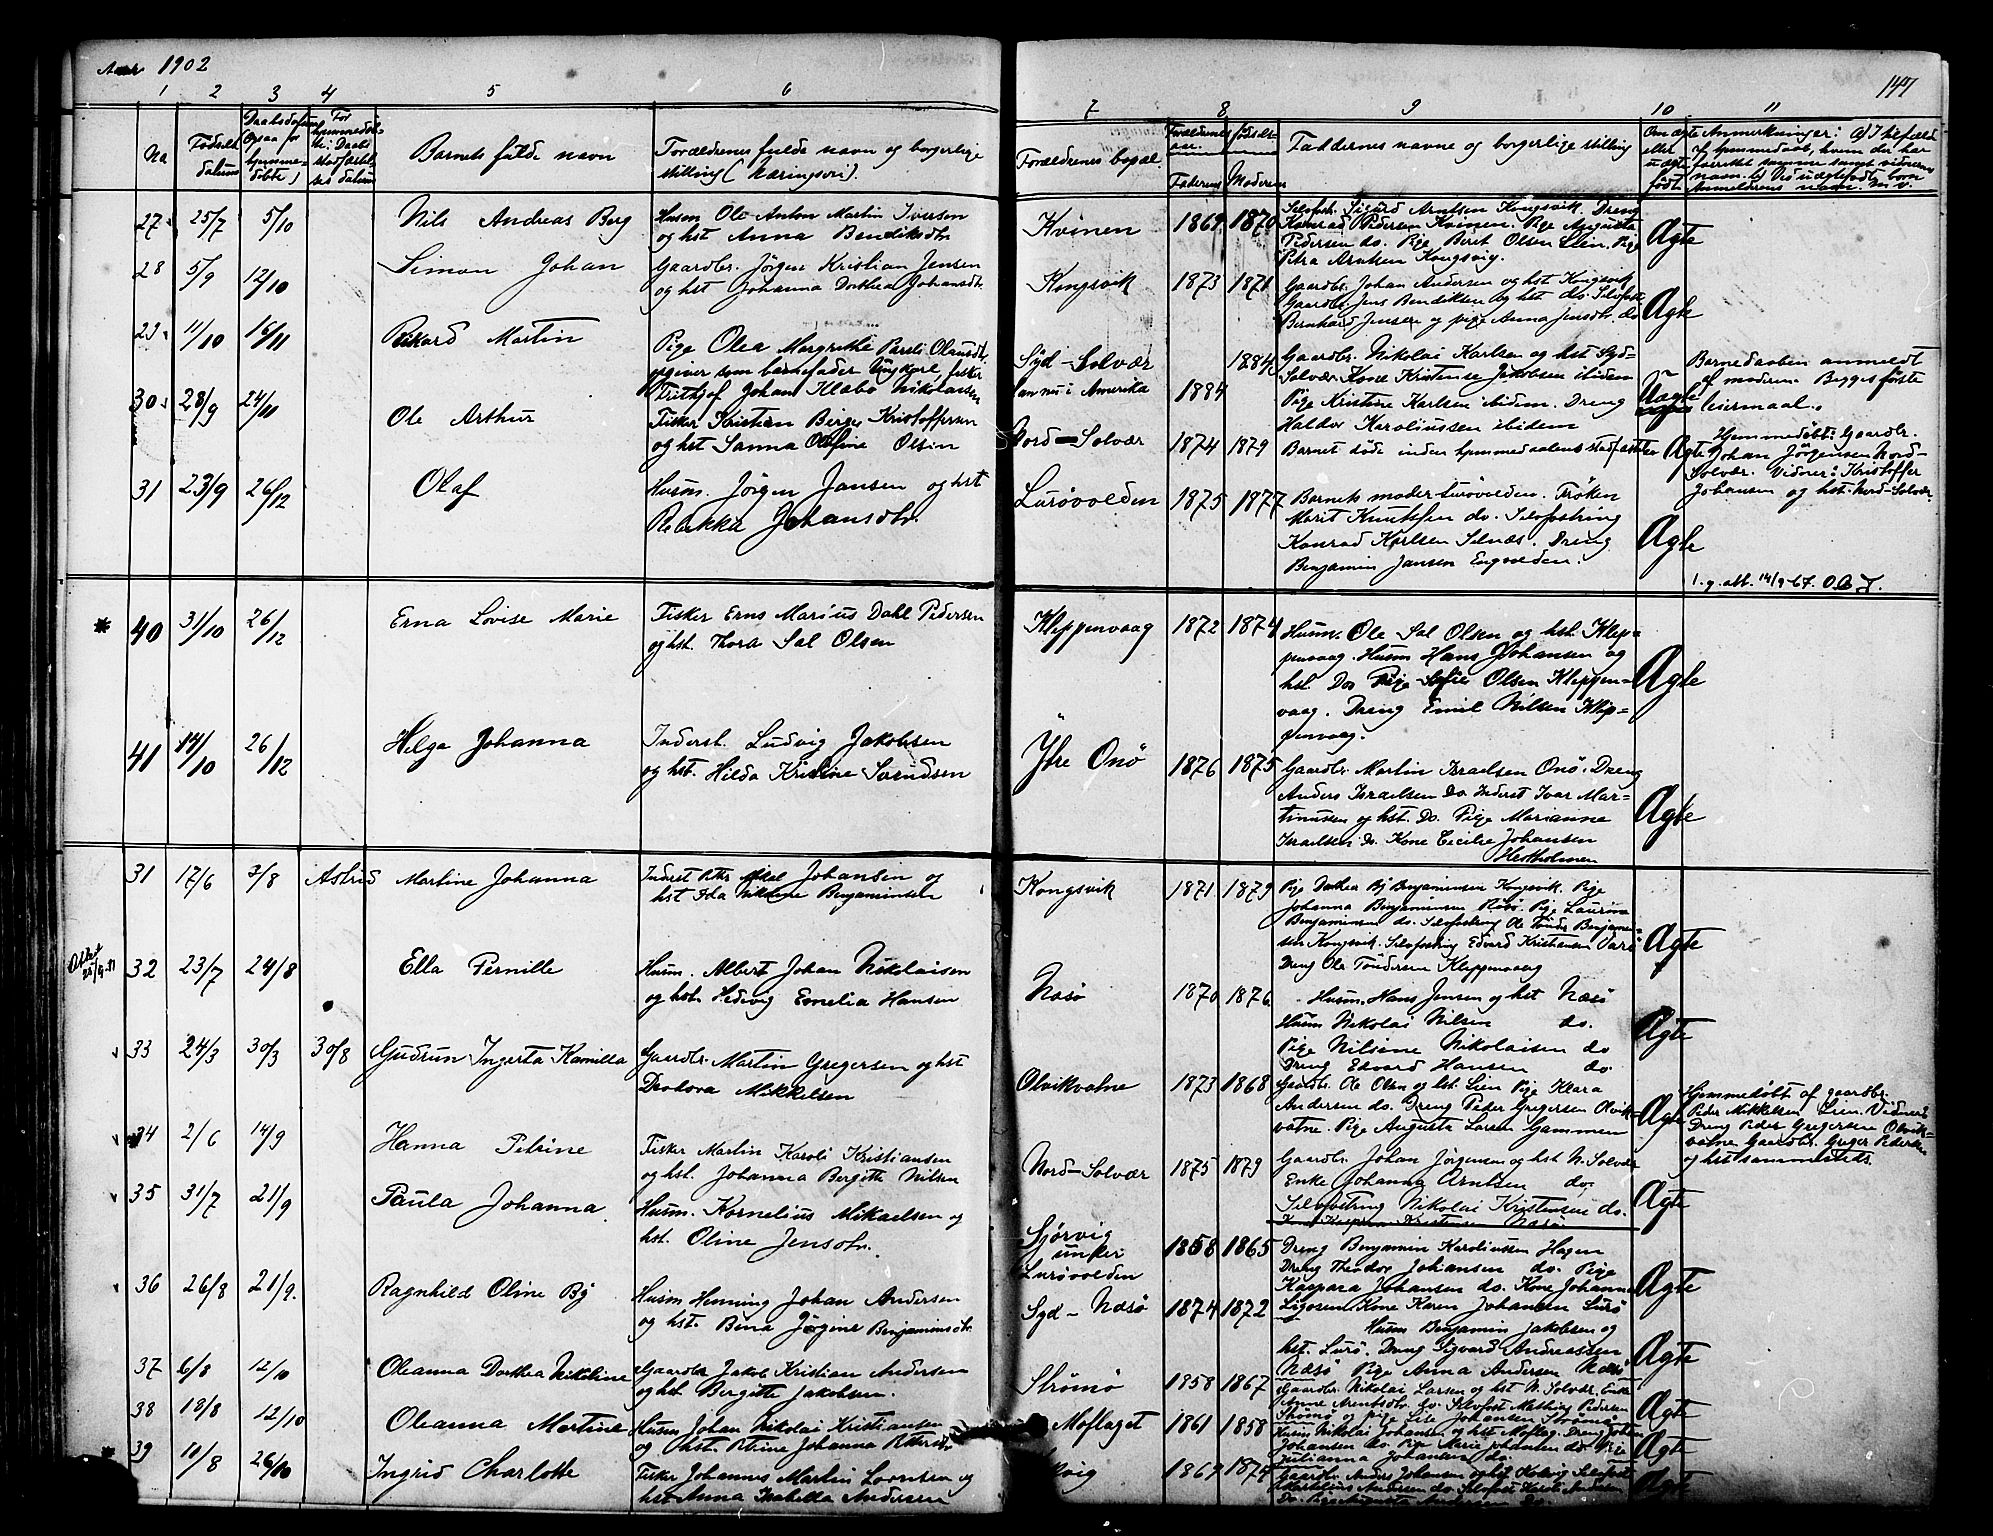 Aar 1902
147
1 2 3 4 5 6 7 8 9 10 11
No
Fødsels datum
Daabsdatum (ogsaa for hjemmedøbte)
Barnets fulde navn
Forældrenes fulde navn og borgerlige
stilling (Næringsvei).
Forældrenes bopæl
Forældrenes fødselsaar
Faderens Moderens
Faddernes navne og borgerlige stilling
Om ægte
eller
uægte
født
Anmerkninger: a) I tilfælde
af hjemmedaab, hvem der har
forrettet samme samt vidnernes
navn. b) Ved uægtefødt børn
Anmelderens navn. m. v.
27 25/7 5/10 Nils Andreas Berg
Husm Ole Anton Martin Iversen
og hst Anna Bendiksdtr.
Kvinen 1869 1870
Selvfostr. Sigurd Arntsen Kongsvik. Dreng
Konrad Pedersen Kvinen. Pige Augusta
Pedersen do. Pige Beret Olsen Lien. Pige
Petra Arntsen Kongsvig.
Ægte
28 5/9 12/10 Simon Johan
Gaardbr. Jørgen Kristian Jensen
og hst Johanna Dorthea Johansdtr.
Kongsvik 1873 1871
Gaardbr. Johan Andersen og hst Kongsvik
Gaardbr. Jens Bendiksen og hst do. Selvfostr
Bernhard Jensen og pige Anna Jensdtr. do
Ægte
29 11/10 16/11 Rikard Martin
Pige Olea Margrethe Pareli Olausdtr.
opgiver som barnefader Ungkarl, fisker
Frithjof Johan Klæbo Nikolaisen
Syd-Solvær
han nu i Amerika
1884 1884
Gaardbr. Nikolai Karlsen og hst Syd-
Solvær. Kone Kristense Jakobsen ibidem
Pige Kristine Karlsen ibidem. Dreng
Haldor Karoliussen ibidem
Uægte
Barnedaaben anmeldt
af moderen. Begges første
leiermaal.
30 28/9 24/11 Ole Arthur
Fisker Kristian Birger Kristoffersen
og hst Sanna Olefine Olsen
Nord-Solvær 1874 1879
Barnet døde inden hjemmedaabens stadfæstelse
Ægte
Hjemmedøbt: Gaardbr.
Johan Jørgensen Nord-
Solvær. Vidner: Kristoffer
Johansen og hst. Nord-Solvær.
31 23/9 26/12 Olaf
Husm. Jørgen Jansen og hst
Rebekka Johansdtr.
Lurøvolden 1875 1877
Barnets moder Lurøvolden. Frøken
Marit Knutsen do. Selvfostring
Konrad Karlsen Selnæs. Dreng
Benjamin Jansen Engvolden.
Ægte
1. g. att. 14/9-67. O.G.J.
40 31/10 26/12 Erna Lovise Marie
Fisker Erns Marius Dahl Pedersen
og hst. Thora Sal Olsen
Kleppenvaag 1872 1874
Husm. Ole Sal Olsen og hst. Klep-
penvaag. Husm Hans Johansen og
hst. Do. Pige Sofie Olsen Kleppen-
vaag. Dreng Emil Nilsen Klep-
penvaag.
Ægte
41 14/10 26/12 Helga Johanna
Inderst. Ludvig Jakobsen
og hst. Hilda Kristine Svendsen
Ytre Onø 1876 1875
Gaardbr Martin Israelsen Onø. Dreng
Anders Israelsen Do. Inderst Ivar Mar-
tinussen og hst. Do. Pige Marianne
Israelsen Do. Kone Cecilie Johansen
Hestholmen
Ægte
31 17/6 3/8 Astrid Martine Johanna
Johansen og
hst Benjaminsen
Kongsvik 1871 1879
Pige Dorthea Bj Benjaminsen Kongsvik. Pige
Johanna Benjaminsen Pige Laurine
Benjaminsen do. Selvfostring Ole Tønder Benjamin-
sen Kongsvik. Selvfostring Edvard Kristiansen
Dreng Ole Tøndersen Kleppenvaag
Ægte
32 23/7 24/8 Ella Pernille
Husm. Albert Johan Nikolaisen
og hst. Hedvig Emelia Hansen
Næsø 1870 1876
Husm. Hans Jensen og hst Næsø
Husm Nikolai Nilsen do.
Pige Nilsine Nikolaisen do
Dreng Edvard Hansen do.
Ægte
33 24/3 30/3 30/8 Gudrun Ingerta Kamilla
Gaardbr. Martin Gregersen og hst
Dorthea Mikkelsen
Olvikvatne 1873 1868
Gaardbr. Ole Olsen og hst. Lien Pige Klara
Andersen do. Dreng Peder Gregersen Olvik-
vatne. Pige Augusta Larsen Gammen
Ægte
Hjemmedøbt af gaardbr.
Peder Mikkelsen Lien. Vidner:
Dreng Peder Gregersen Olvik-
vatne Gaardbr. Greger Pedersen
og hst sammesteds.
34 2/6 14/9 Hanna Petrine
Fisker Martin Karoli Kristiansen
og hst. Johanna Bergitte Nilsen
Nord-Solvær 1875 1879
Gaardbr. Johan Jørgensen og hst N. Solvær
Enke Johanna Arntsen do.
Selvfostring Nikolai Kristensen do.
Ægte
35 31/7 21/9 Paula Johanna
Husm. Kornelius Mikaelsen og
hst. Oline Jensdtr.
Sjørvig
under
Lurøvolden
1858 1865
Dreng Benjamin Karoliussen Hagen
Dreng Theodor Johansen do. Pige
Kaspara Johansen do. Kone Johanna
Ligosen Kone Karen Johansen Lurø
Ægte
36 26/8 21/9. Ragnhild Oline Bj
Husm Henning Johan Andersen
og hst. Bina Jørgine Benjaminsdtr.
Syd-Næsø 1874 1872
Husm Benjamin Jakobsen og
hst. Lurø. Dreng Sigvard Andreassen
Næsø Pige Anna Andersen Næsø
Ægte
37 6/8 12/10 Oleanna Dorthea Nikoline
Gaardbr Jakob Kristian Andersen
og hst. Bergitte Jakobsen.
Strømø 1858 1867
Gaardbr. Nikolai Larsen og hst N. Solvær. Enke
Anne Arentsdtr. do. Selvfost Mathias Pedersen
Strømø og pige Lise Johansen Strømø
Ægte
38 18/8 12/10 Oleanna Martine
Husm Johan Nikolai Kristiansen
og hst. Petrine Johanna
Moflaget 1861 1858
Husm Nikolai Johansen og hst Moflag. Dreng Johan
Johansen do. Pige Marie Johansen do. Pige
Julianna Johansen do.
Ægte
39 10/8 26/10 Ingrid Charlotte
Fisker Johannes Martin Lorentsen og
hst Anna Isabella Andersen
1869 1874
Gaardbr Anders Johansen og hst Selvfost
Andersen do. Selvfost Andersen
Ægte